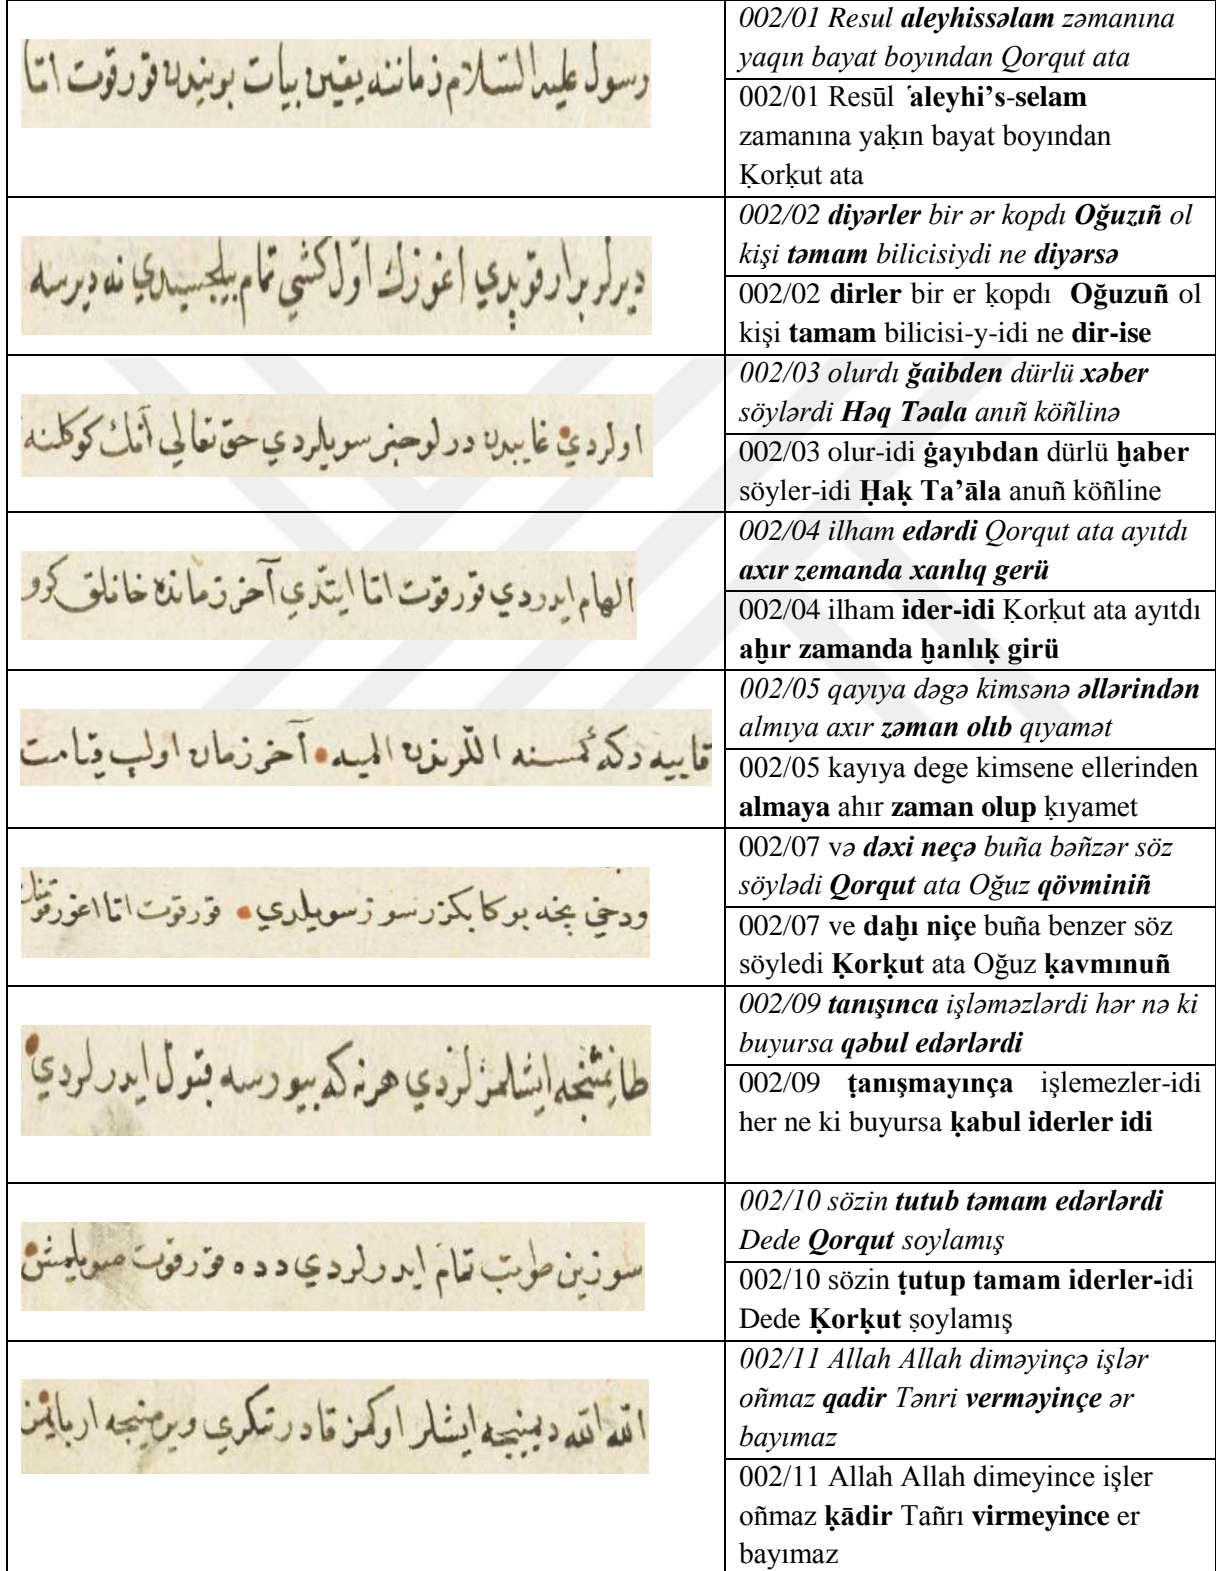 رسول عليه السلام زماننه يقين بيات بويندن قورقوت اتا
002/01 Resul aleyhissəlam zəmanına
yaqın bayat boyından Qorqut ata
002/01 Resūl ʿaleyhi’s-selam
zamanına yaḳın bayat boyından
Ḳorḳut ata
ديرلر بر ار قوپدي اغوزك اول كشي تمام بيلجسيدي نه ديرسه
002/02 diyərler bir ər kopdı Oğuzıñ ol
kişi təmam bilicisiydi ne diyərsə
002/02 dirler bir er ḳopdı Oğuzuñ ol
kişi tamam bilicisi-y-idi ne dir-ise
اولردي غاييبدن درلو خبر سويلردي حق تعالي آنك كوكلنه
002/03 olurdı ğaibden dürlü xəber
söylərdi Həq Təala anıñ köñlinə
002/03 olur-idi ġayıbdan dürlü ḫaber
söyler-idi Ḥaḳ Ta’āla anuñ köñline
الهام ايدردي قورقوت اتا ايتدي آخر زمانده خانلق كرو
002/04 ilham edərdi Qorqut ata ayıtdı
axır zemanda xanlıq gerü
002/04 ilham ider-idi Ḳorḳut ata ayıtdı
aḫır zamanda ḫanlıḳ girü
قاييه دكه كمسنه اللرندن الميه آخر زمان اولب قيامت
002/05 qayıya dəgə kimsənə əllərindən
almıya axır zəman olıb qıyamət
002/05 kayıya dege kimsene ellerinden
almaya ahır zaman olup ḳıyamet
ودخي نجه بوكا بكزر سوز سويلدي قورقوت اتا اغوز قومنك
002/07 və dəxi neçə buña bəñzər söz
söylədi Qorqut ata Oğuz qövminiñ
002/07 ve daḫı niçe buña benzer söz
söyledi Ḳorḳut ata Oğuz ḳavmınuñ
طانشمنجه ايشلمزلردي هرنه كه بيورسه قبول ايدرلردي
002/09 tanışınca işləməzlərdi hər nə ki
buyursa qəbul edərlərdi
002/09 ṭanışmayınça işlemezler-idi
her ne ki buyursa ḳabul iderler idi
سوزين طوتب تمام ايدرلردي دده قورقوت صويلمش
002/10 sözin tutub təmam edərlərdi
Dede Qorqut soylamış
002/10 sözin ṭutup tamam iderler-idi
Dede Ḳorḳut ṣoylamış
الله الله ديمينجه ايشلر اوكمز قادر تكري ويرمينجه ار بايمز
002/11 Allah Allah diməyinçə işlər
oñmaz qadir Tənri verməyinçe ər
bayımaz
002/11 Allah Allah dimeyince işler
oñmaz ḳādir Tañrı virmeyince er
bayımaz